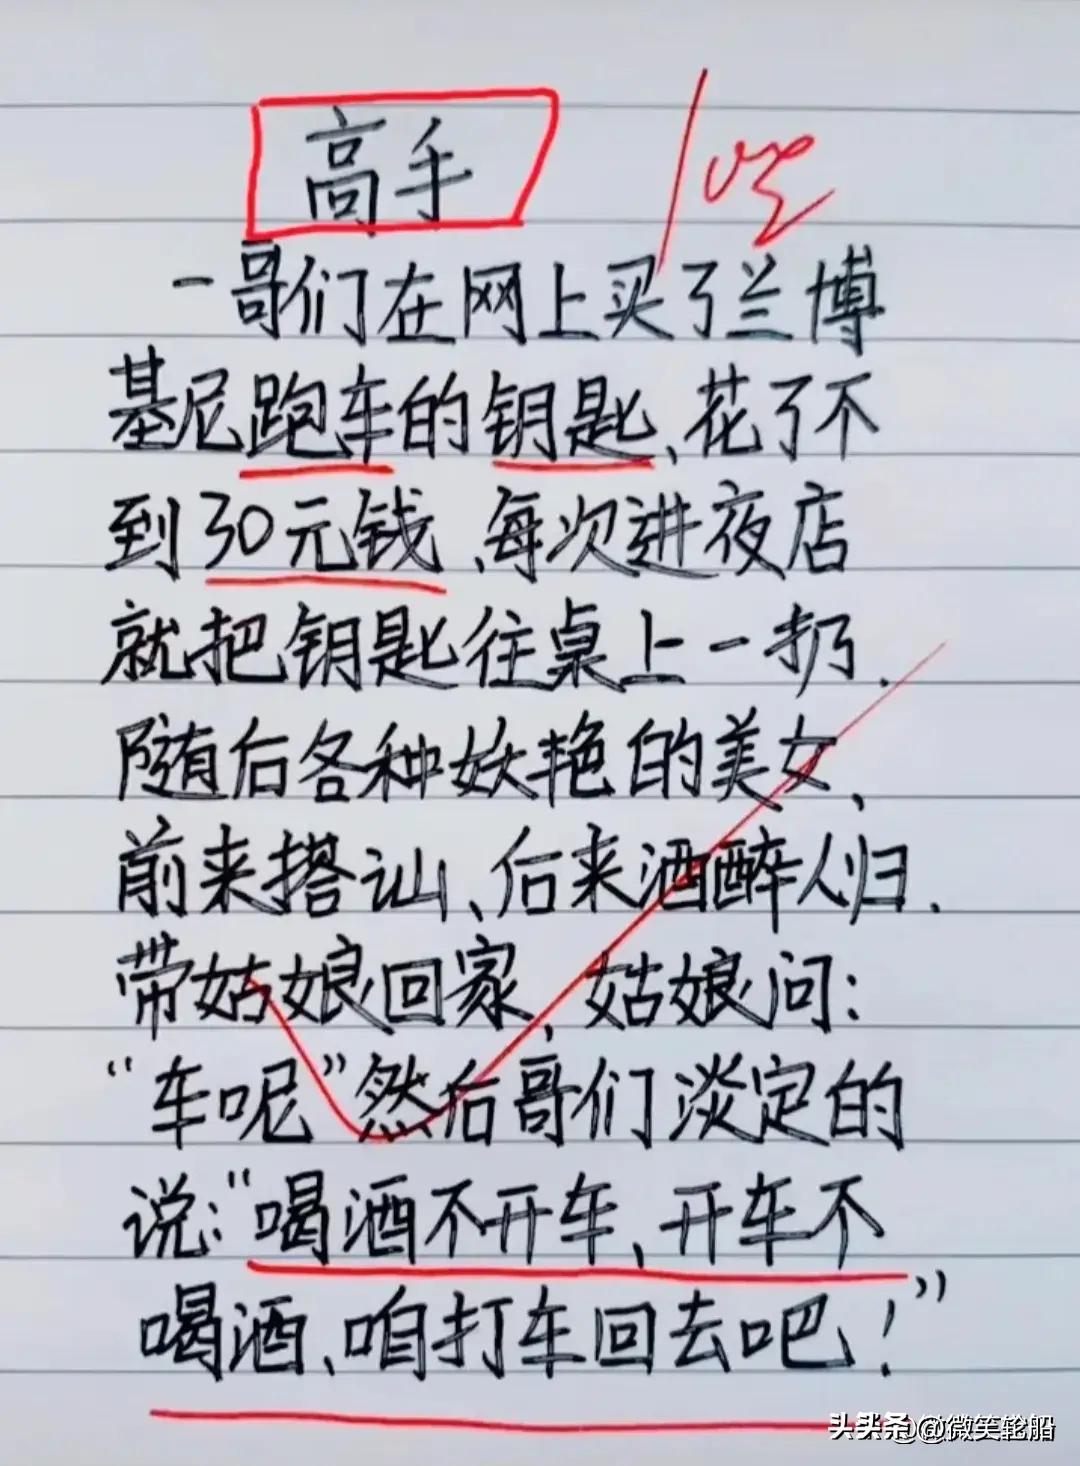 高手
一哥们在网上买了兰博
基尼跑车的钥匙、花了不
到30元钱、每次进夜店
就把钥匙往桌上一扔.
随后各种妖艳的美女、
前来搭讪、后来酒醉人归.
带姑娘回家、姑娘问:
“车呢”然后哥们淡定的
说:“喝酒不开车、开车不
喝酒、咱打车回去吧、!”
头条 @微笑轮船